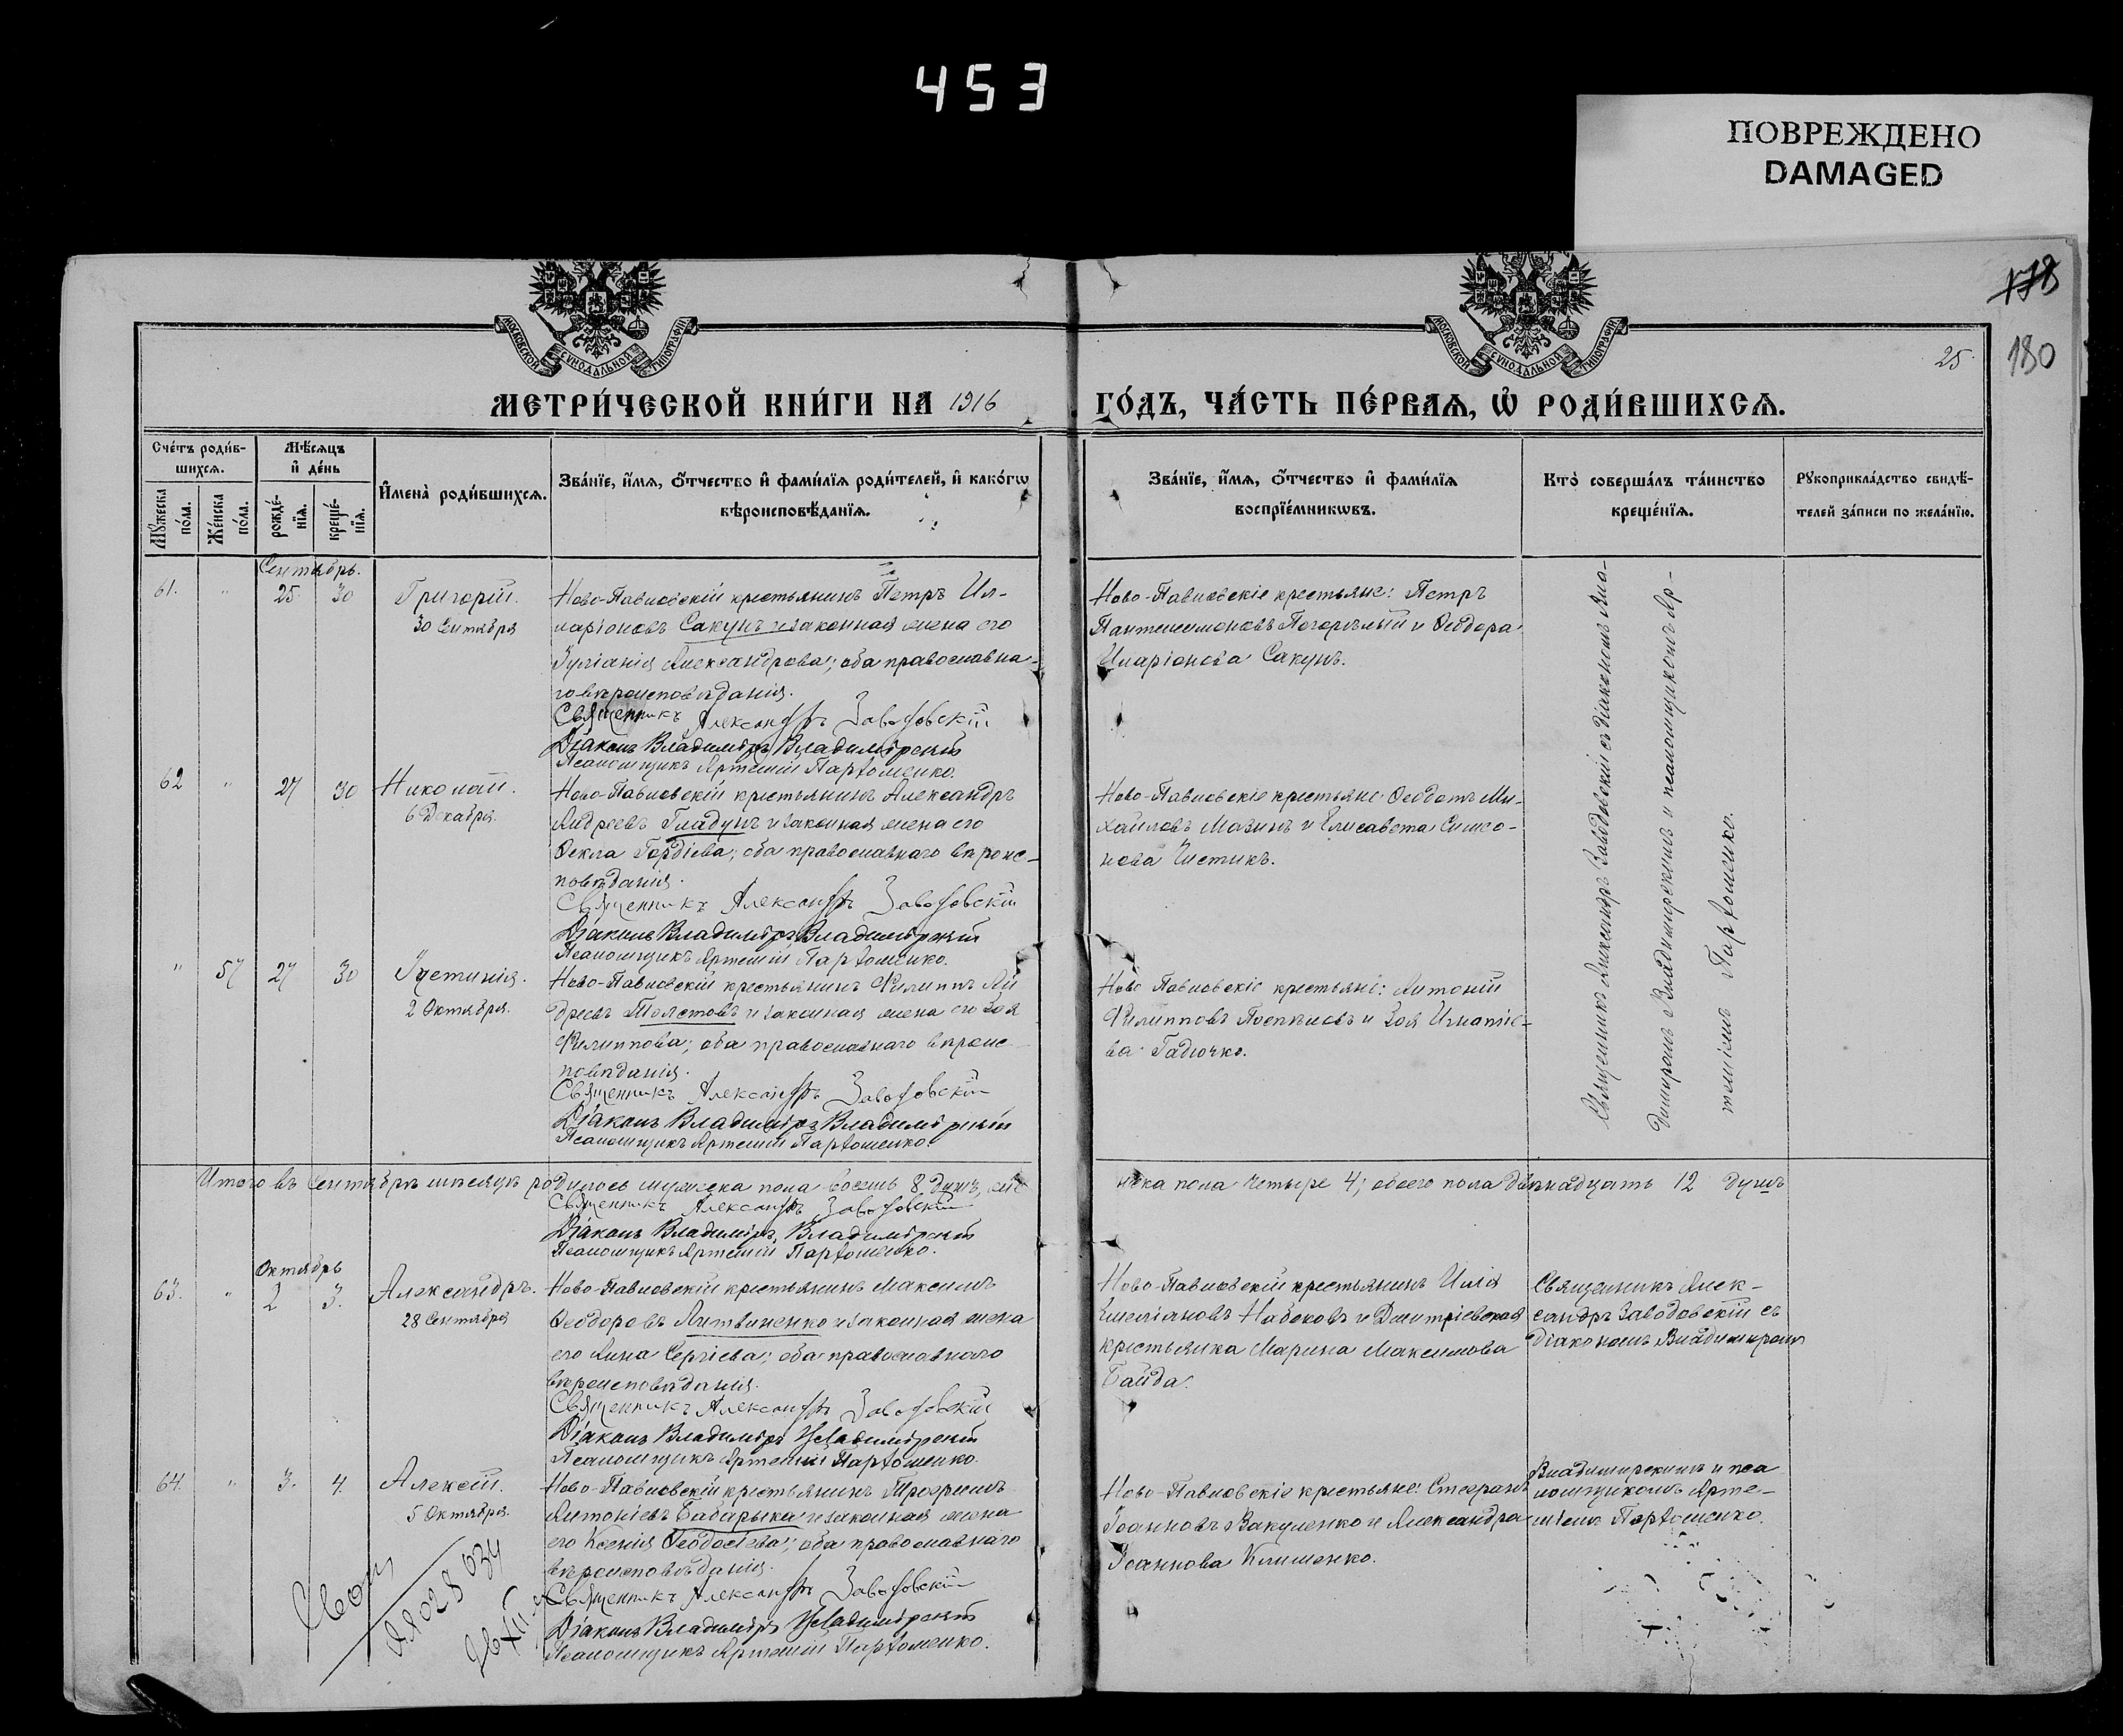 453
ПОВРЕЖДЕНО
DAMAGED
178
180
25
МОСКОВСКОЙ СѴНОДАЛЬНОЙ ТИПОГРАФІИ
МОСКОВСКОЙ СѴНОДАЛЬНОЙ ТИПОГРАФІИ
МЕТРИ́ЧЕСКОЙ КНИ́ГИ НА 1916
ГО́ДЪ, ЧА́СТЬ ПЕ́РВАѦ, Ѡ҆ РОДИ́ВШИХСѦ.
Сче́тъ роди́в-
шихсѧ.
Мѣ́сѧцъ
и҆ де́нь
Мꙋ́жеска
по́ла.
Же́нска
по́ла.
рожде́-
нїѧ.
креще́-
нїѧ.
И҆мена̀ роди́вшихсѧ.
Зва́нїе, и҆́мѧ, ѻ҆́тчество и҆ фами́лїѧ роди́телей, и҆ како́гѡ
вѣроисповѣ́данїѧ.
Зва́нїе, и҆́мѧ, ѻ҆́тчество и҆ фами́лїѧ
воспрїе́мникѡвъ.
Кто̀ соверша́лъ та́инство
креще́нїѧ.
Рꙋкоприкла́дство свидѣ́-
телей за́писи по жела́нїю.
Сентябрь.
61. " 25 30 Григорій.
30 Сентября
Ново-Павловскій крестьянинъ Петръ Ил-
ларіоновъ Сакунъ и законная жена его
Іуліанія Александрова; оба православна-
го вѣроисповѣданія.
Священникъ Александръ Заводовскій
Діаконъ Владиміръ Владимірскій
Псаломщикъ Артемій Пархоменко.
Ново-Павловскіе крестьяне: Петръ
Пантелеимоновъ Погорѣлый и Ѳеодора
Иларіонова Сакунъ.
Священникъ Александръ Заводовскій съ діакономъ Вла-
диміромъ Владимірскимъ и псаломщикомъ Ар-
теміемъ Пархоменко.
62 " 27 30 Николай.
6 Декабря.
Ново-Павловскій крестьянинъ Александръ
Андреевъ Гладунъ и законная жена его
Ѳекла Гордіева; оба православнаго вѣроис-
повѣданія.
Священникъ Александръ Заводовскій
Діаконъ Владиміръ Владимірскій
Псаломщикъ Артемій Пархоменко.
Ново-Павловскіе крестьяне: Ѳеодотъ Ми-
хайловъ Мазинъ и Елисавета Симео-
нова Чистикъ.
" 57 27 30 Іустинія.
2 Октября.
Ново-Павловскій крестьянинъ Филиппъ Ан
дреевъ Толстовъ и законная жена его Зоя
Филиппова; оба православнаго вѣроис
повѣданія.
Священникъ Александръ Заводовскій
Діаконъ Владиміръ Владимірскій
Псаломщикъ Артемій Пархоменко.
Ново Павловскіе крестьяне: Антоній
Филипповъ Поспѣловъ и Зоя Игнатіе-
ва Гадючко.
Итого въ Сентябрѣ мѣсяцѣ родилось мужеска пола восемь 8 душъ, жен
ска пола четыре 4; обоего пола двѣнадцать 12 душъ
Священникъ Александръ Заводовскій
Діаконъ Владиміръ Владимірскій
Псаломщикъ Артемій Пархоменко.
Октябрь
63. " 2 3. Александръ.
28 Сентября
Ново-Павловскій крестьянинъ Максимъ
Ѳеодоровъ Литвиненко и законная жена
его Анна Сергіева; оба православнаго
вѣроисповѣданія.
Священникъ Александръ Заводовскій
Діаконъ Владиміръ Владимірскій
Псаломщикъ Артемій Пархоменко.
Ново-Павловскій крестьянинъ Илія
Емеліановъ Набоковъ и Дмитріевская
крестьянка Марина Максимова
Байда.
Священникъ Алек-
сандръ Заводовскій съ
діакономъ Владиміромъ
64. " 3. 4. Алексій.
5 Октября.
Ново-Павловскій крестьянинъ Трофимъ
Антоніевъ Бабарыка и законная жена
его Ксенія Ѳеодосіева; оба православнаго
вѣроисповѣданія.
Священникъ Александръ Заводовскій
Діаконъ Владиміръ Владимірскій
Псаломщикъ Артемій Пархоменко.
Ново-Павловскіе крестьяне: Стефанъ
Іоанновъ Вакуленко и Александра
Іоаннова Клименко.
Владимірскимъ и пса
ломщикомъ Арте-
міемъ Пархоменко.
028034
XII